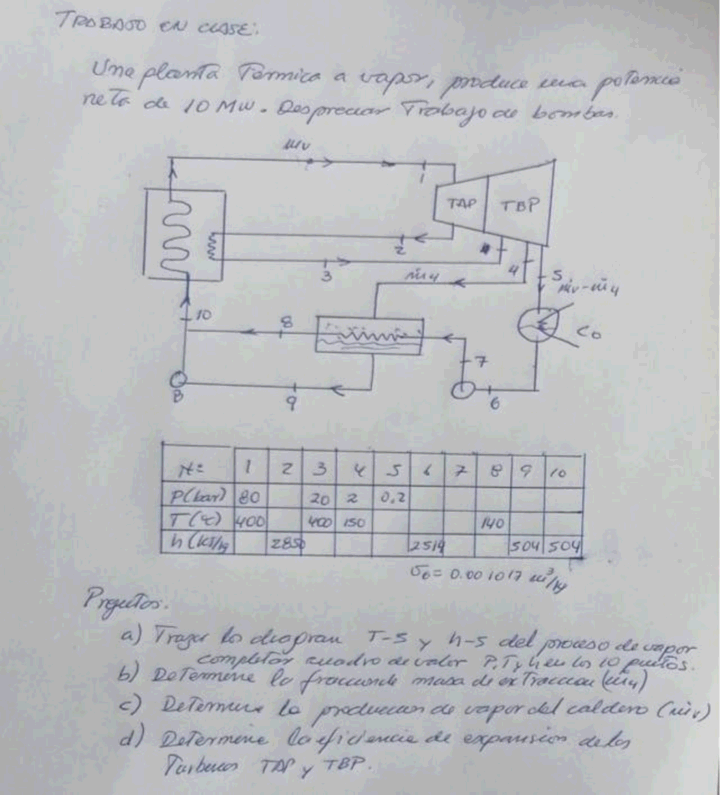 TRABAJO EN CLASE:
Una planta Térmica a vapor, produce una potencia
neta de 10 MW. Despreciar Trabajo de bombas.
ṁv
1
TAP TBP
2
3
4
5
ṁ4
ṁv-ṁ4
Co
10
8
7
6
B
9
Nº 1 2 3 4 5 6 7 8 9 10
P(bar) 80 20 2 0.2
T(°C) 400 400 150 140
h(KJ/kg 2850 2514 504 504
σ6 = 0.001017 m³/kg
a) Trazar los diagram T-S y h-s del proceso de vapor
completar cuadro de valor P, T, h en los 10 puntos.
b) Determine la fraccion de masa de extraccion (ṁ4)
c) Determine la produccion de vapor del caldero (ṁv)
d) Determine la eficiencia de expansión de las
Turbinas TAP y TBP.